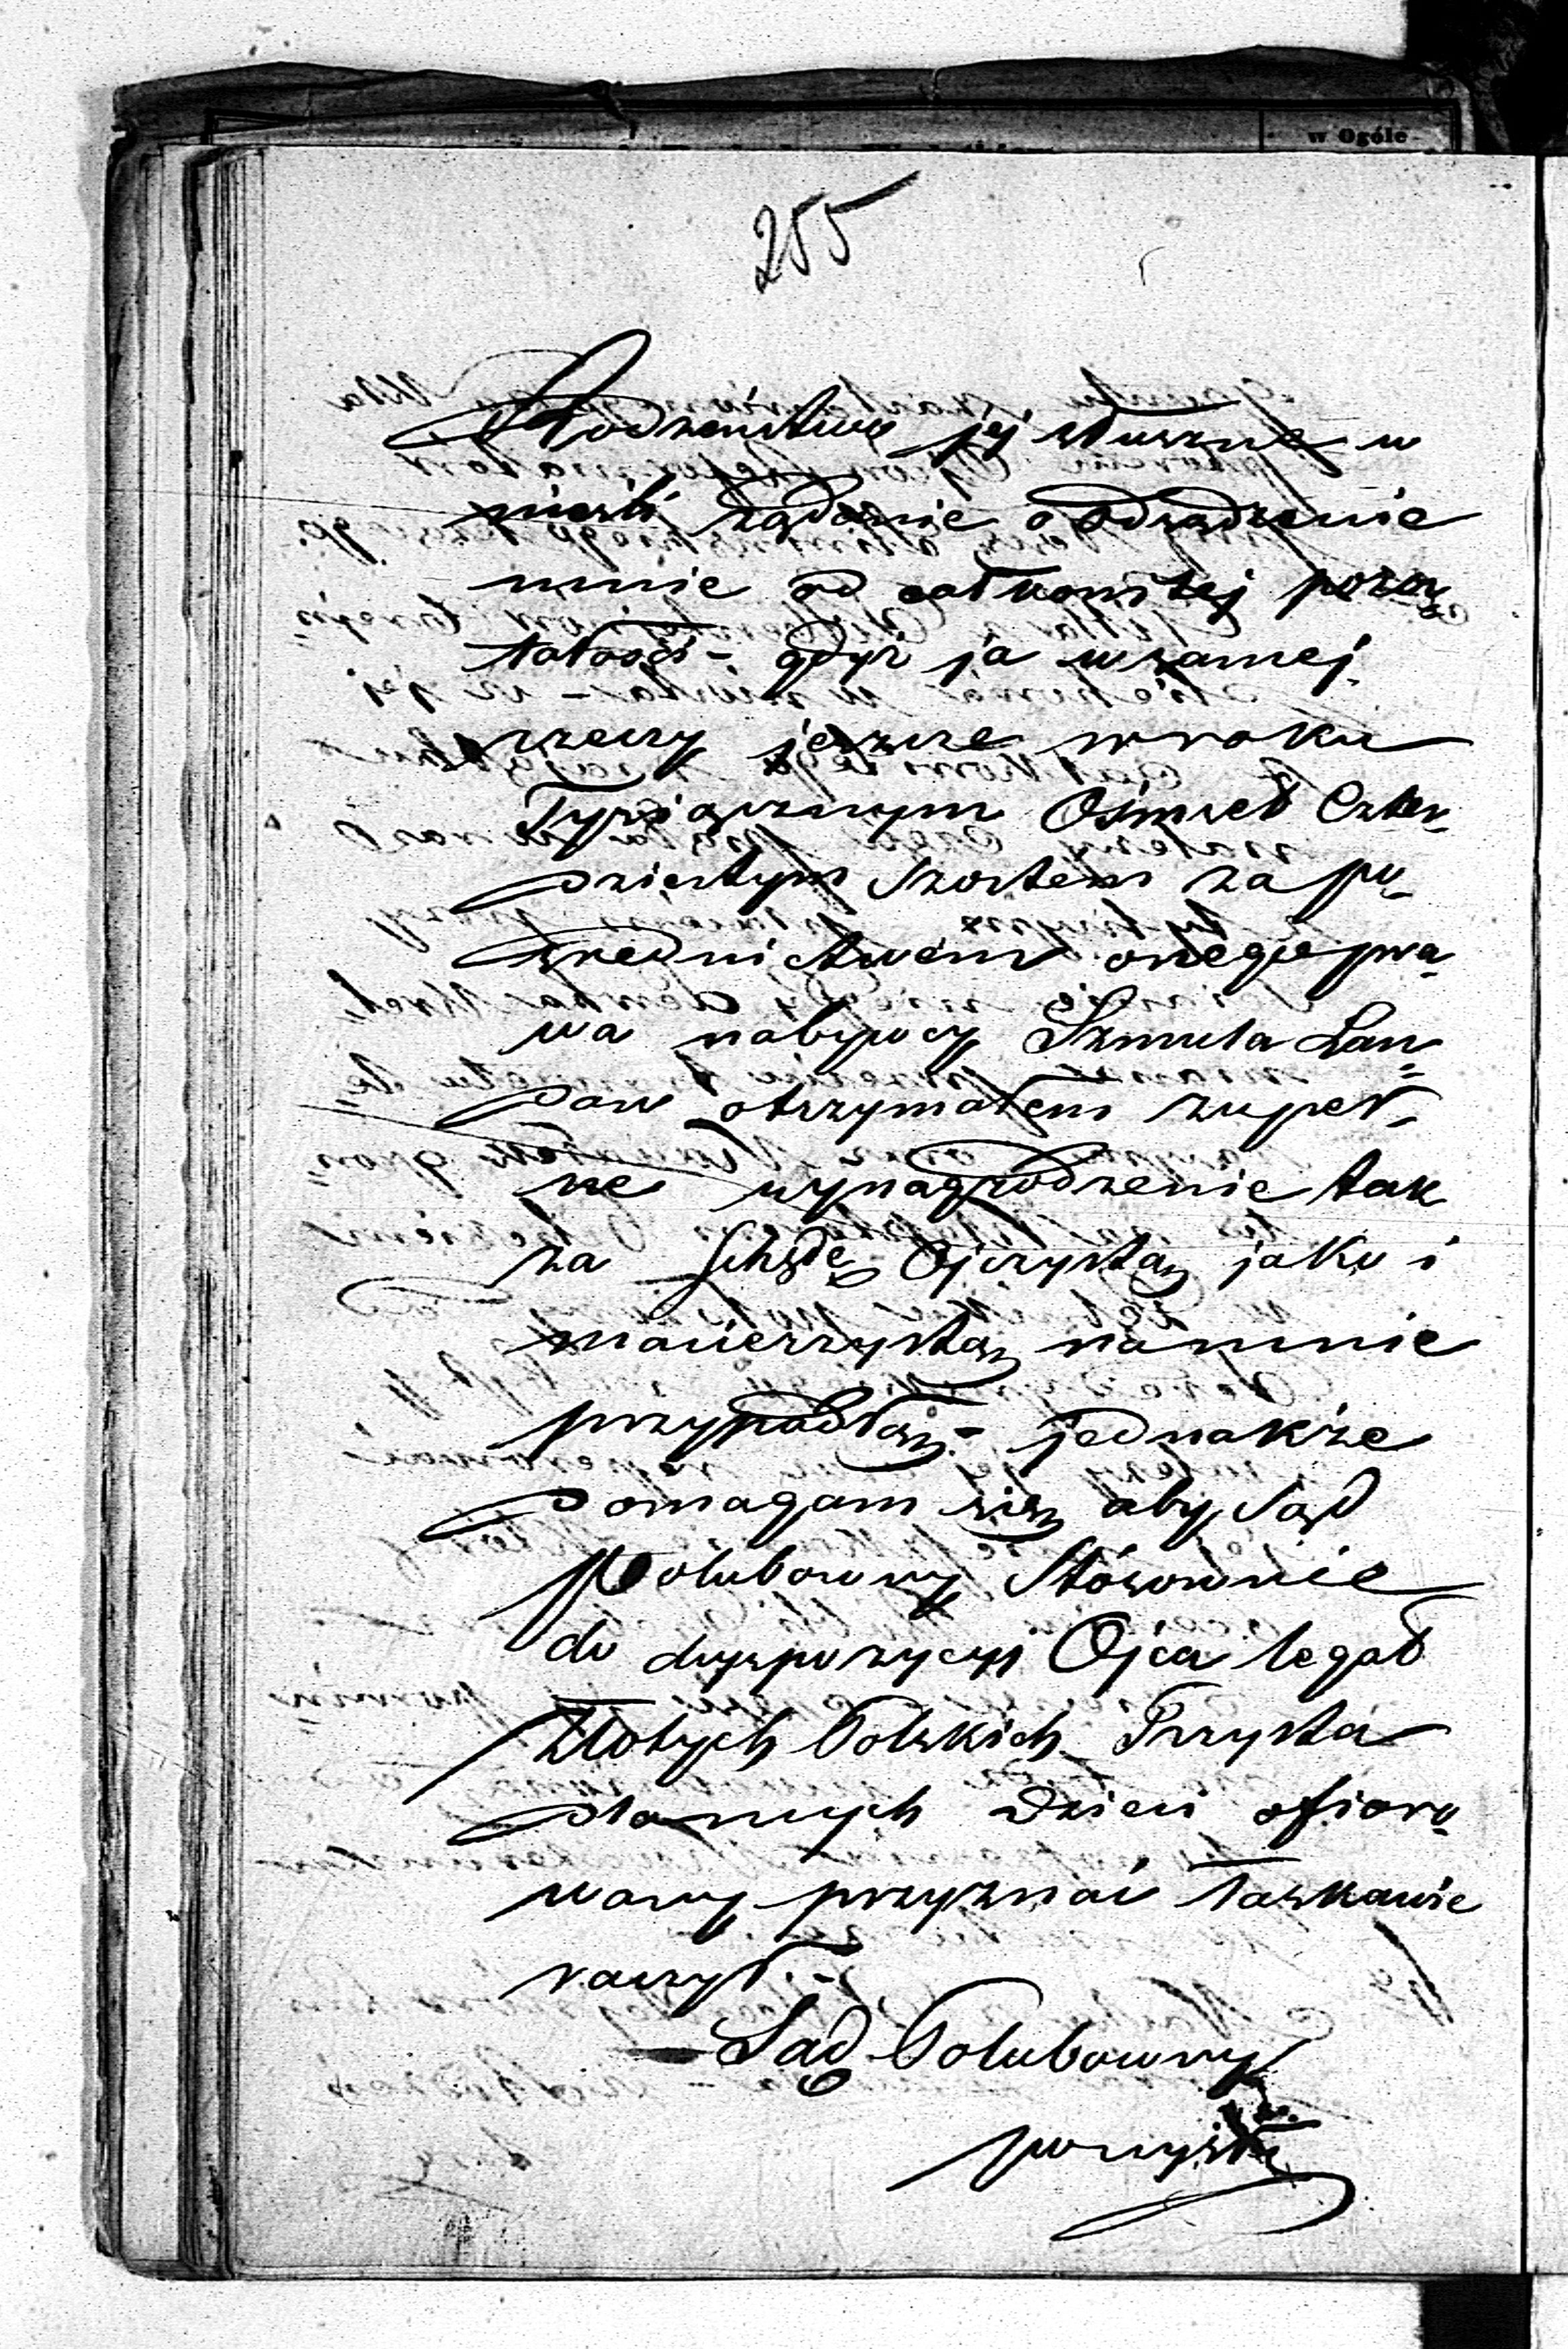 w Ogóle
255
Rodzeństwo jej słuszne w
nieśli żądanie o odsądzenie
mnie od całkowitej pozo„
stałości – gdyż ja w samej
rzeczy jeszcze w roku
Tysiącznym Ośmset Czter„
dziestym Szóstem za po„
srednictwem onegoż pra„
wa nabywcy Szmula Lan„
dau otrzymałem zupeł„
ne wynagrodzenie tak
za Schedę Ojczystą jako i
macierzystą na mnie
przypadłą – jednakże
domagam się aby Sąd
Polubowny Stósownie
do dyspozycyi Ojca legat
Złotych Polskich Trzysta
dla mych dzieci ofiaro„
wany przyznać łaskawie
raczył. –
Sąd Polubowny
powyższe